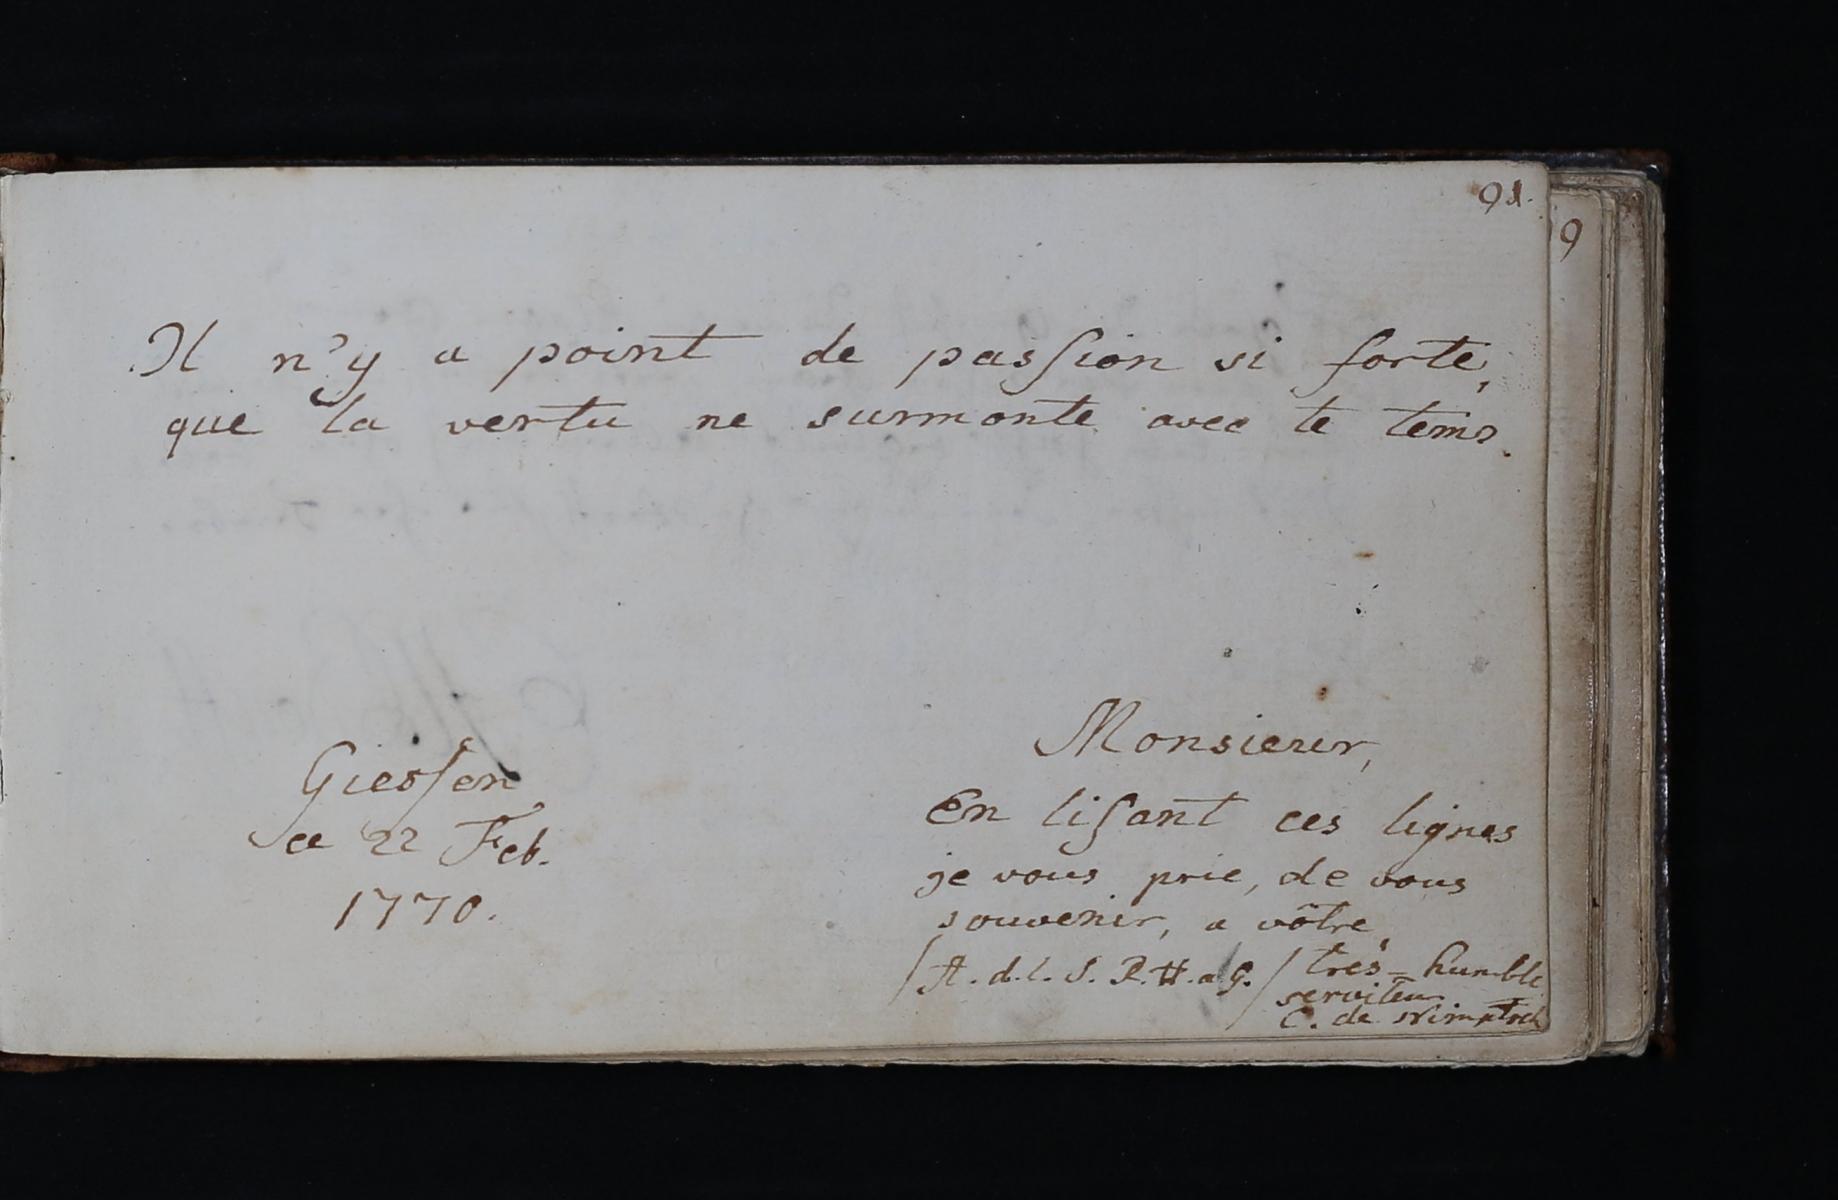 91.
9
Il n'y a point de pasſion si forte,
que la vertu ne surmonte avec le tems.
Giesſen
ce 22 Feb.
1770.
Monsieur,
En liſant ces lignes
je vous prie, de vous
souvenir, a vôtre
/A. d. l. S. P. H. a G./ très-humble
serviteur
C. de Nimptsch